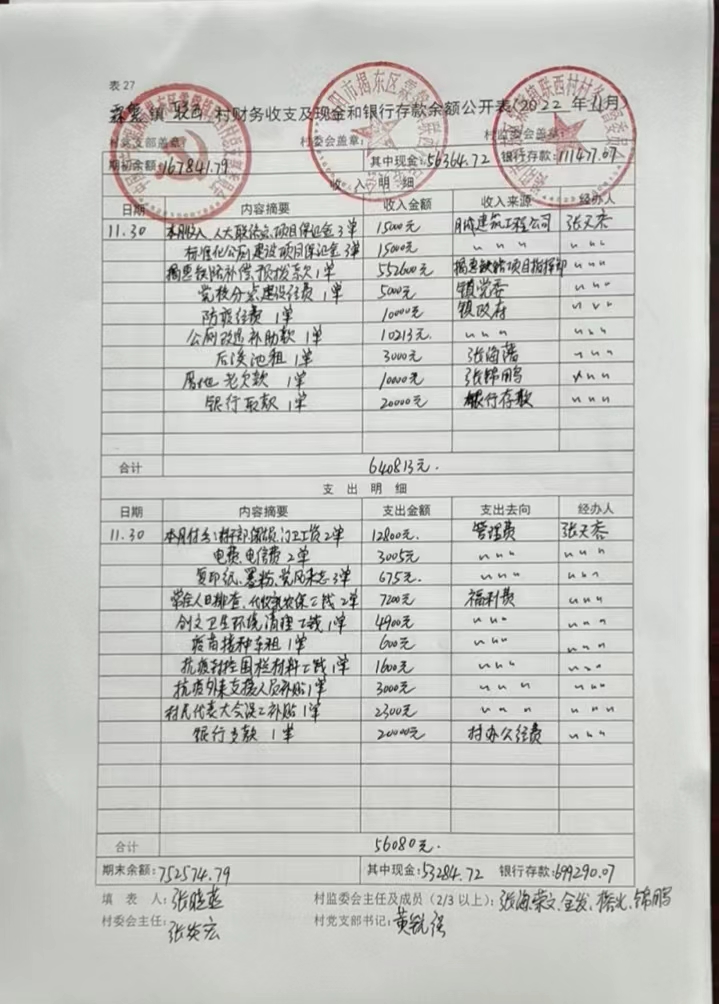 表27
霖磐镇 联西 村财务收支及现金和银行存款余额公开表(2022年11月)
村党支部盖章: 村委会盖章: 村监委会盖章:
期初余额:167841.79 其中现金:56364.72 银行存款:111477.07
收入明细
日期 内容摘要 收入金额 收入来源 经办人
11.30 本月收入、人大联络站项目保证金3单 15000元 月城建筑工程公司 张天泰
标准化公厕建设项目保证金3单 15000元 〃 〃 〃 〃 〃 〃
揭惠铁路补偿预拨款1单 552600元 揭惠铁路项目指挥部 〃 〃 〃
党校分点建设经费1单 5000元 镇党委 〃 〃 〃
防疫经费1单 10000元 镇政府 〃 〃 〃
公厕改造补助款1单 10213元 〃 〃 〃 〃 〃 〃
后溪池租1单 3000元 张海藩 〃 〃 〃
老欠款1单 10000元 张锦鹏 〃 〃 〃
银行取款1单 20000元 银行存款 〃 〃 〃
合计 640813元.
支出明细
日期 内容摘要 支出金额 支出去向 经办人
11.30 本月付出:村干部、保洁员、门卫工资2单 12800元. 管理费 张天泰
电费、电信费2单 3005元 〃 〃 〃 〃 〃 〃
复印纸、墨粉、党风杂志3单 675元. 〃 〃 〃 〃 〃 〃
全人口排查、代收农保工钱2单 7200元 福利费 〃 〃 〃
创文卫生环境清理工钱1单 4900元 〃 〃 〃 〃 〃 〃
疫苗接种车租1单 600元 〃 〃 〃 〃 〃 〃
抗疫封控围栏材料工钱1单 1600元 〃 〃 〃 〃 〃 〃
抗疫外来支援人员补贴1单 3000元 〃 〃 〃 〃 〃 〃
村民代表大会误工补贴1单 2300元 〃 〃 〃 〃 〃 〃
银行支款1单 20000元 村办公经费 〃 〃 〃
合计 56080元.
期末余额:752574.79 其中现金:53284.72 银行存款:699290.07
填表人:张晓燕 村监委会主任及成员(2/3以上):张海荣文、金发、楷光、锦鹏
村委会主任:张炎宏 村党支部书记:黄